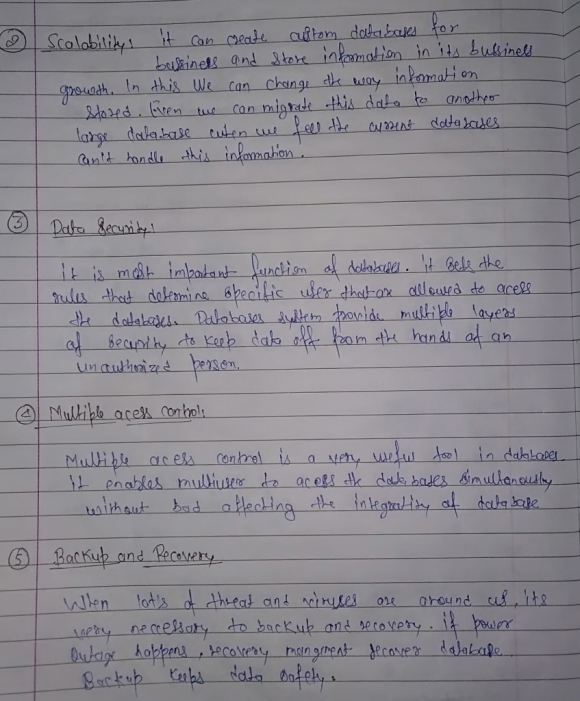 ② Scalability: it can create custom databases for
business and store information in its business
growth. In this We can change the way information
stored. Even we can migrate this data to another
large database when we feel the current databases
can't handle this information.
③ Data Security:
it is most important function of databases. it sets the
rules that determine specific user that are allowed to acess
the databases. Databases system provide multiple layers
of security to keep data off from the hands of an
unauthorized person.
④ Multiple acess control:
Multiple acess control is a very useful tool in databases
It enables multiuser to acess the databases simultonously
without bad affecting the integrality of database
⑤ Backup and Recovery
When lot's of threat and viruses are around us, its
very necessory to backup and recovery. if power
outage happens, recovery mangment recover database
Backup keeps data safely.